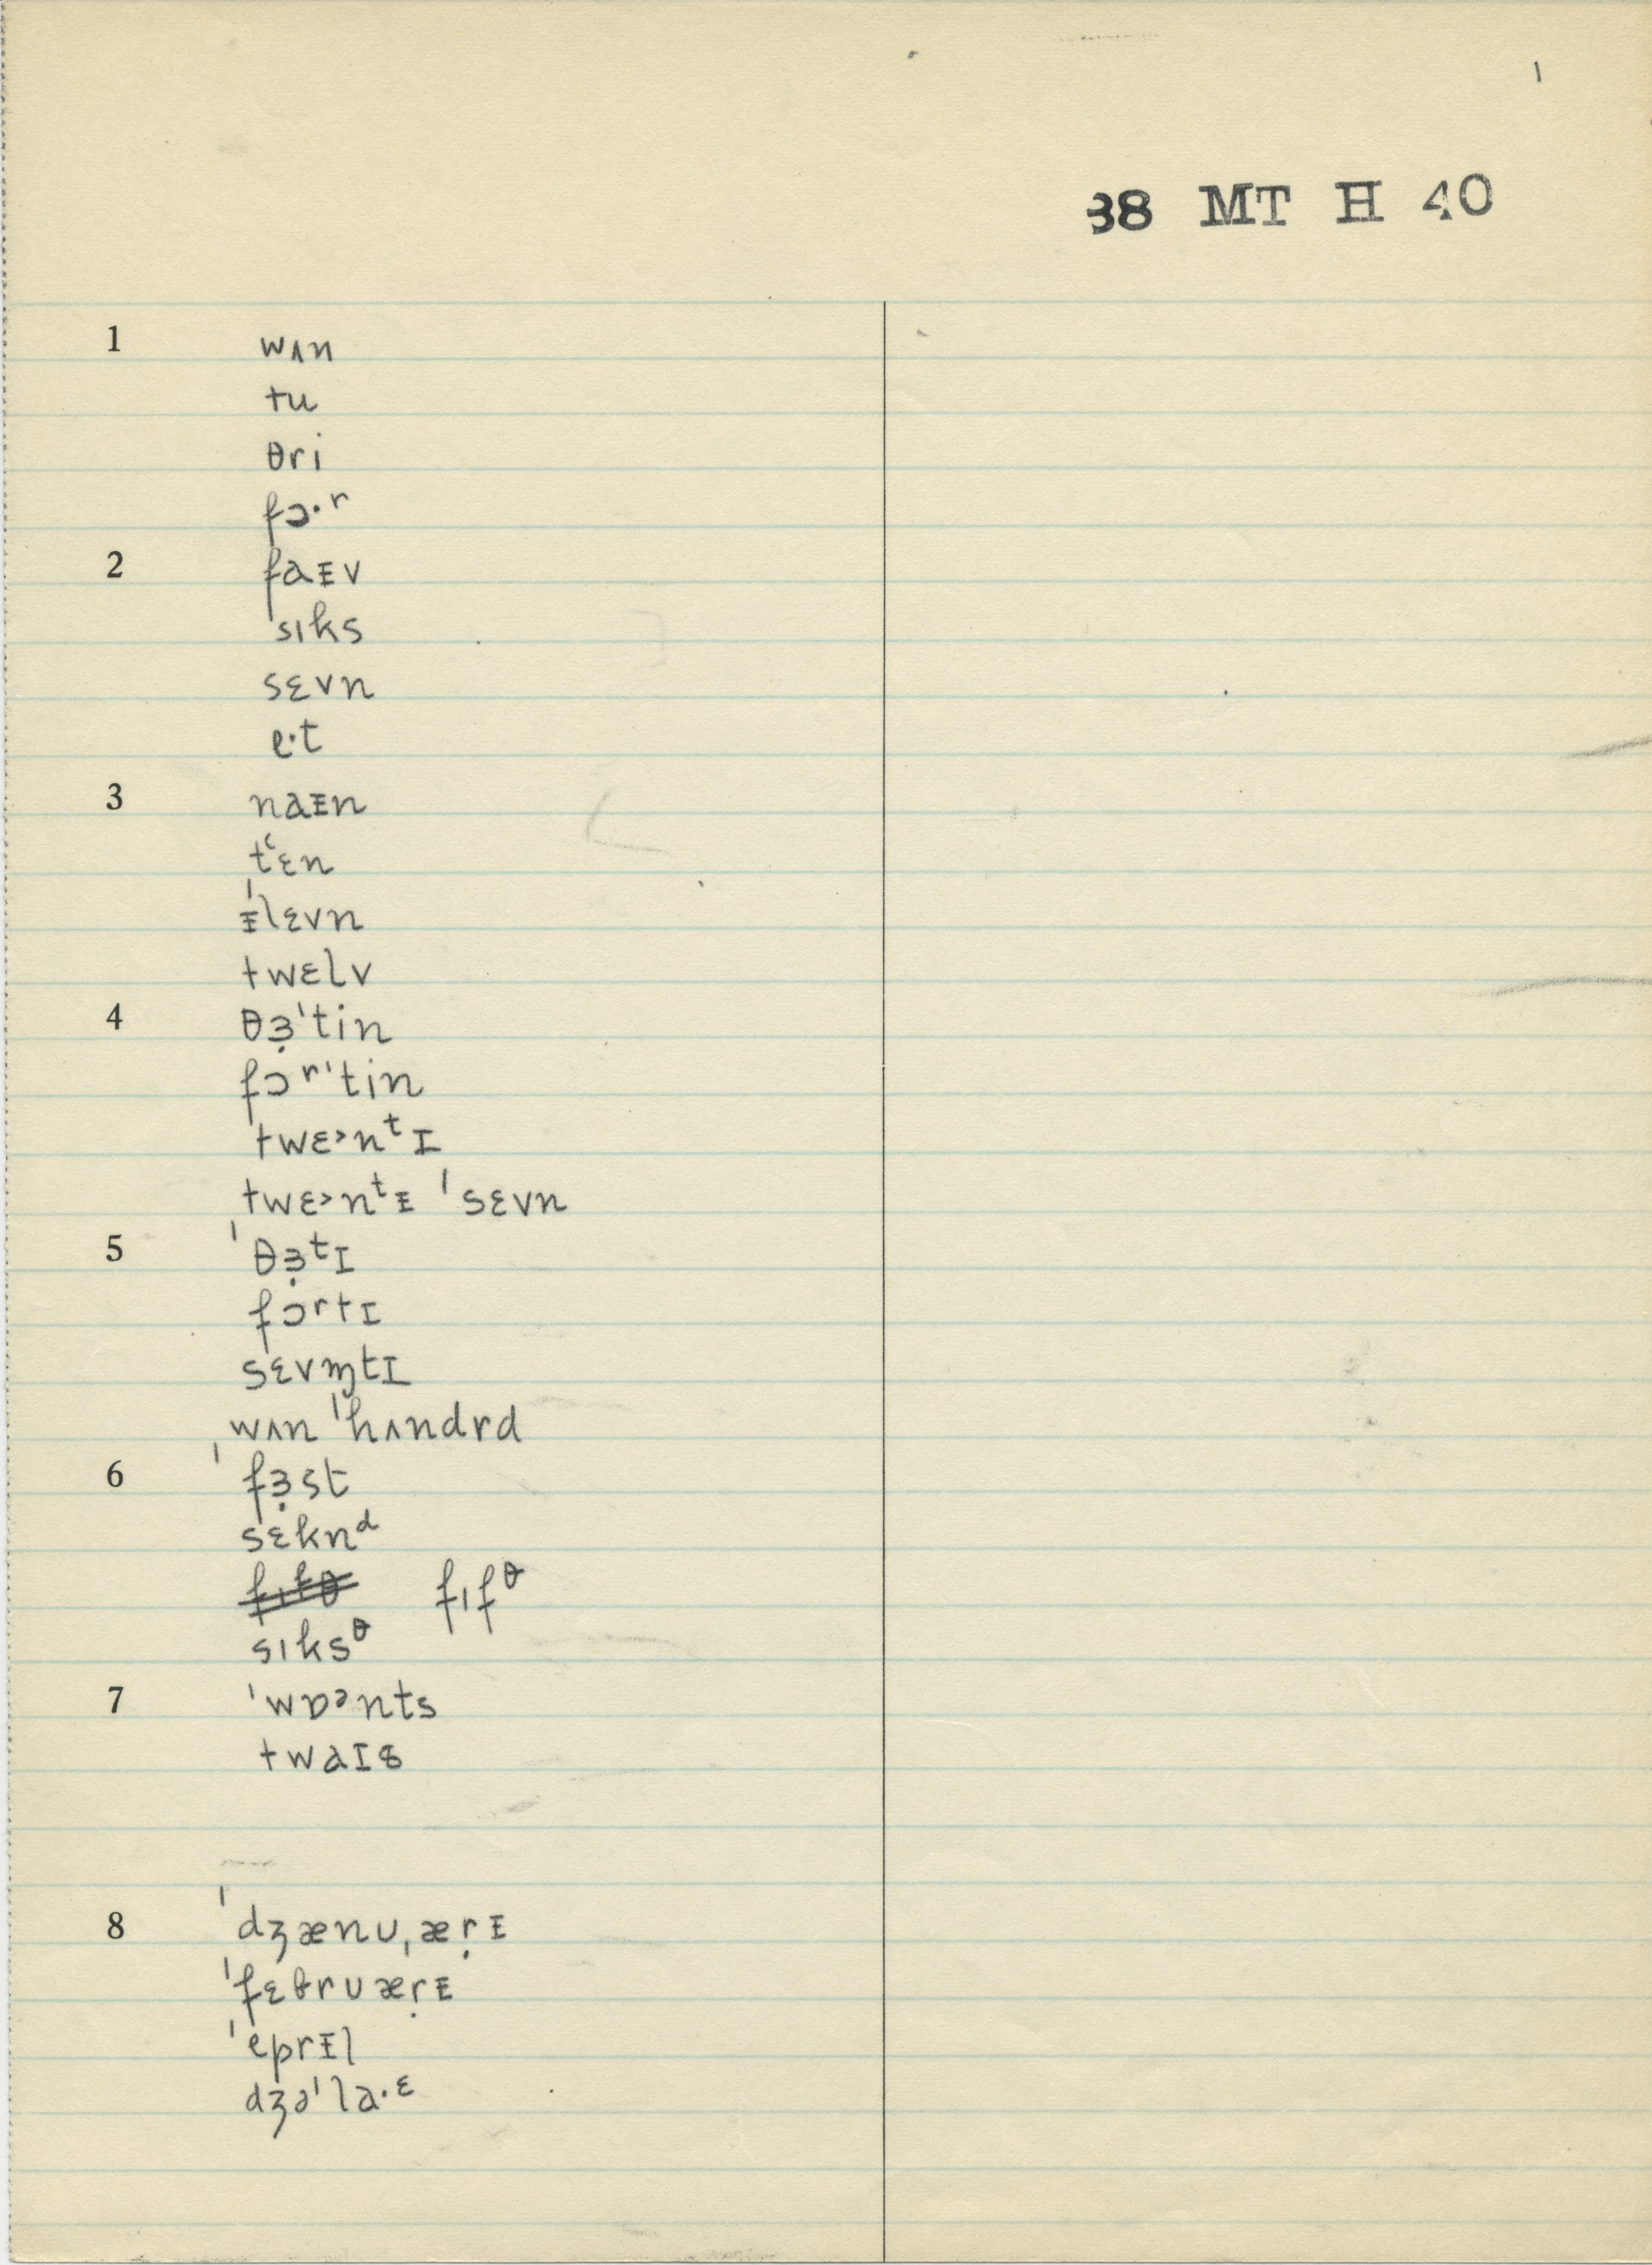 1
38 MT H 40
1 wʌn
tu
θri
fɔ·ʳ
2 faᵻv
sɪks
sɛvn
e·t
3 naᵻn
tʻɛn
ᵻˈlɛvn
twɛlv
4 θɜ̣ˈtin
fɔʳˈtin
twɛ˃nᵗɪ
twɛ˃nᵗᵻ ˈsɛvn
5 ˈθɜ̣ᵗɪ
fɔrtɪ
sɛvɱtɪ
ˌwʌn ˈhʌndrd
6 ˈfɜ̣st
sɛknᵈ
fɪfθ fɪfᶿ
sɪksᶿ
7 ˈwɒᵊnts
twaɪs
8 ˈdʒænʊˌæṛᵻ
ˈfɛbrʊæṛᵻ
ˈeprᵻl
dʒəˈla·ᵋ